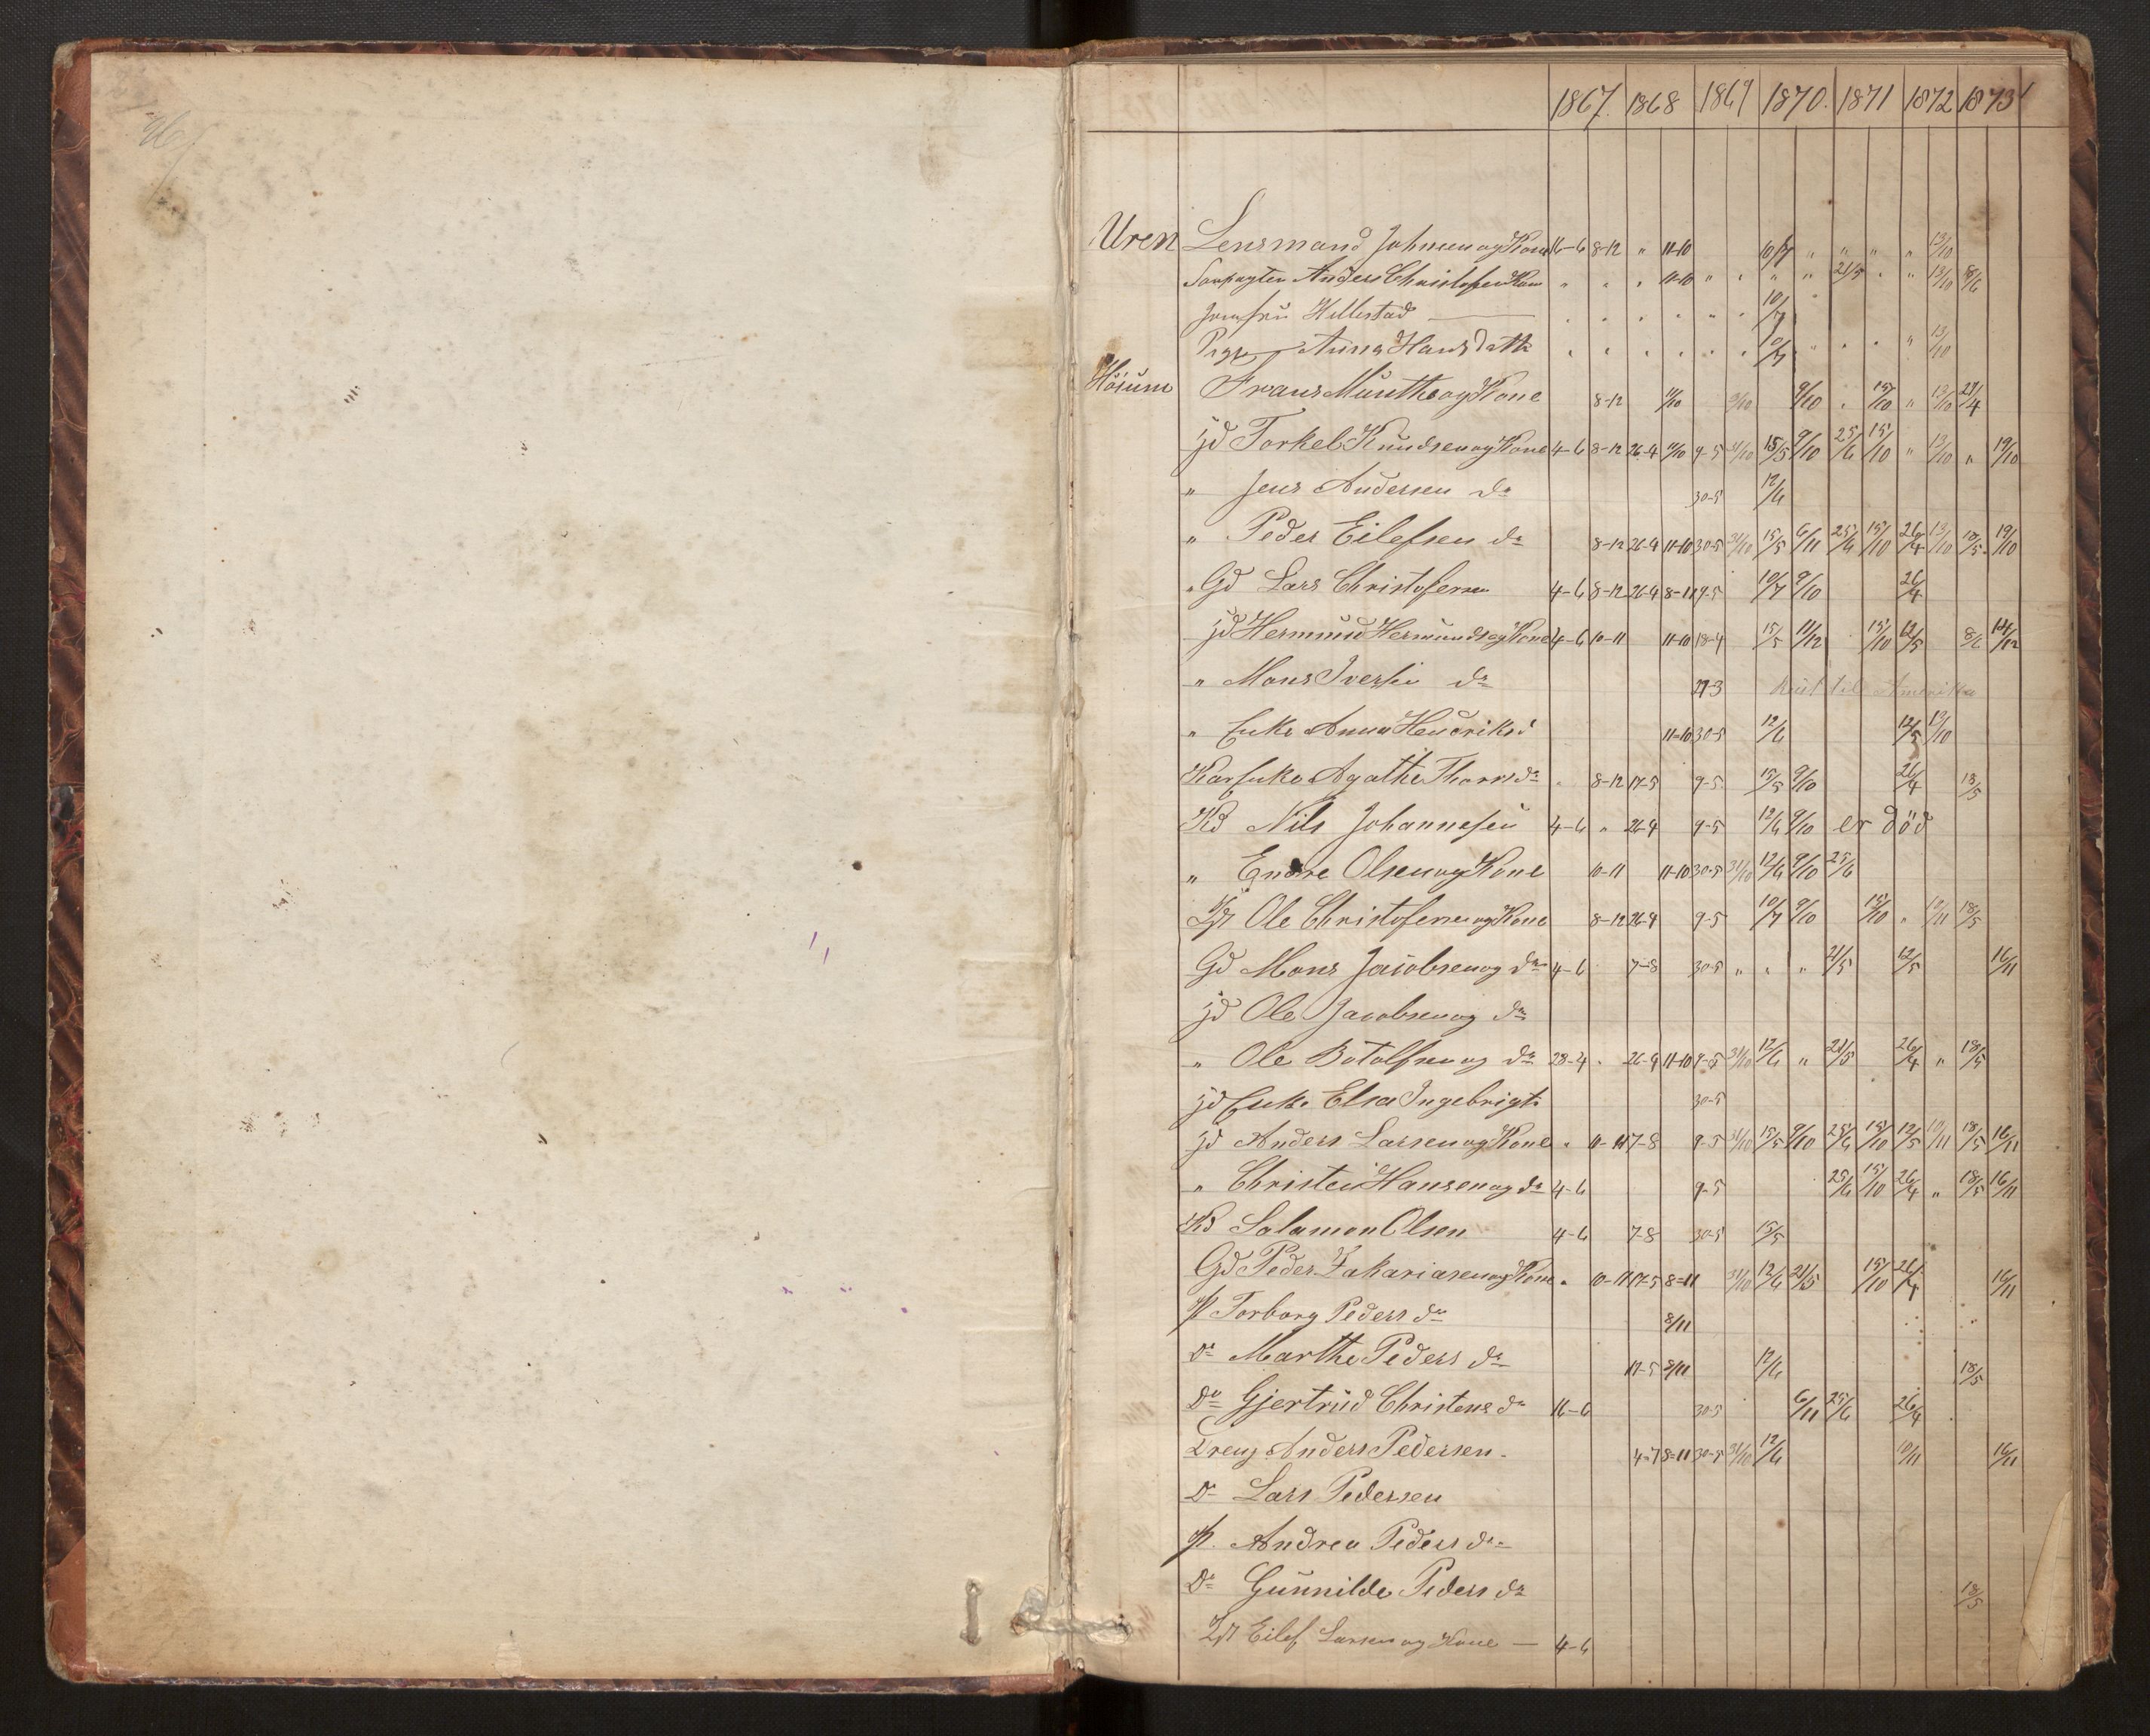 1867. 1868 1869 1870. 1871 1872 1873
Uren Lensmand Johnsen og Kone 16-6 8-12 " 11-10 10/7 " " " " 13/10
Anders Christofersen Kone " " " 11-10 " " " " 21/5 " " 13/10 18/6
Jomfru Hellestad — " " " " " " 10/7
Pige Anna Hansdatter " " " " " " 10/7 " " " " 13/10
Höium Frans Münthe og Kone 8-12 11/10 9/10 9/10 " 15/10 " 13/10 21/4
jd Torkel Knudsen og Kone 4-6 8-12 26-4 11/10 9-5 31/10 15/5 9/10 25/6 15/10 " 13/10 " 19/10
" Jens Andersen do 30-5 12/6
" Peder Eilefsen do 8-12 26-4 11-10 30-5 31/10 15/5 6/11 25/6 15/10 26/4 13/10 18/5 19/10
" Gd Lars Christofersen 4-6 8-12 26-4 8-11 9-5 10/7 9/10 26/4
jd Hermund Hermunds og Kone 4-6 10-11 11-10 18-4 15/5 11/12 15/10 12/5 8/6 14/12
" Mons Iversen do 21-3 til Amerika
" Enke Anna Henriksd 11-10 30-5 12/6 12/5 13/10
Kaarenke Agathe Thorsdr " 8-12 17-5 9-5 15/5 9/10 26/4 18/5
Kd Nils Johannesen 4-6 " 26-4 9-5 12/6 9/10 er död
" Endre Olsen og Kone 10-11 11-10 30-5 31/10 12/6 9/10 25/6
Ole Christofersen og Kone 8-12 26-4 9-5 10/7 9/10 15/10 " 10/11 18/5
Gd Mons Jacobsen og do 4-6 7-8 30-5 " " " 21/5 12/5 16/11
jd Ole Jacobsen og do
" Ole Botolfsen og do 28-4 " 26-4 11-10 9-5 31/10 12/6 " 21/5 26/4 " 18/5
jd Enke Elsa Ingebrigts 30-5
jd Anders Larsen og Kone " 10-11 7-8 9-5 31/10 15/5 9/10 25/6 15/10 12/5 10/11 18/5 16/11
" Christen Hansen og do 4-6 9-5 25/6 15/10 26/4 " 18/5 16/11
Kd Salamon Olsen 4-6 7-8 30-5 15/5
Gd Peder Zakariasen og Kone " 10-11 17-5 8-11 31/10 12/6 21/5 15/10 26/4 16/11
P Torborg Peders dr 8/11
Do Marthe Peders dr 17-5 8/11 12/6 18/5
Do Gjertrüd Christens dr 16-6 30-5 6/11 25/6 26/4
Dreng Anders Pedersen. 4-7 8-11 30-5 31/10 12/6 10/11 16/11
Do Lars Pedersen
P. Andrea Peders dr
Do Gunnilde Peders dr 18/5
Eilef Larsen og Kone — 4-6